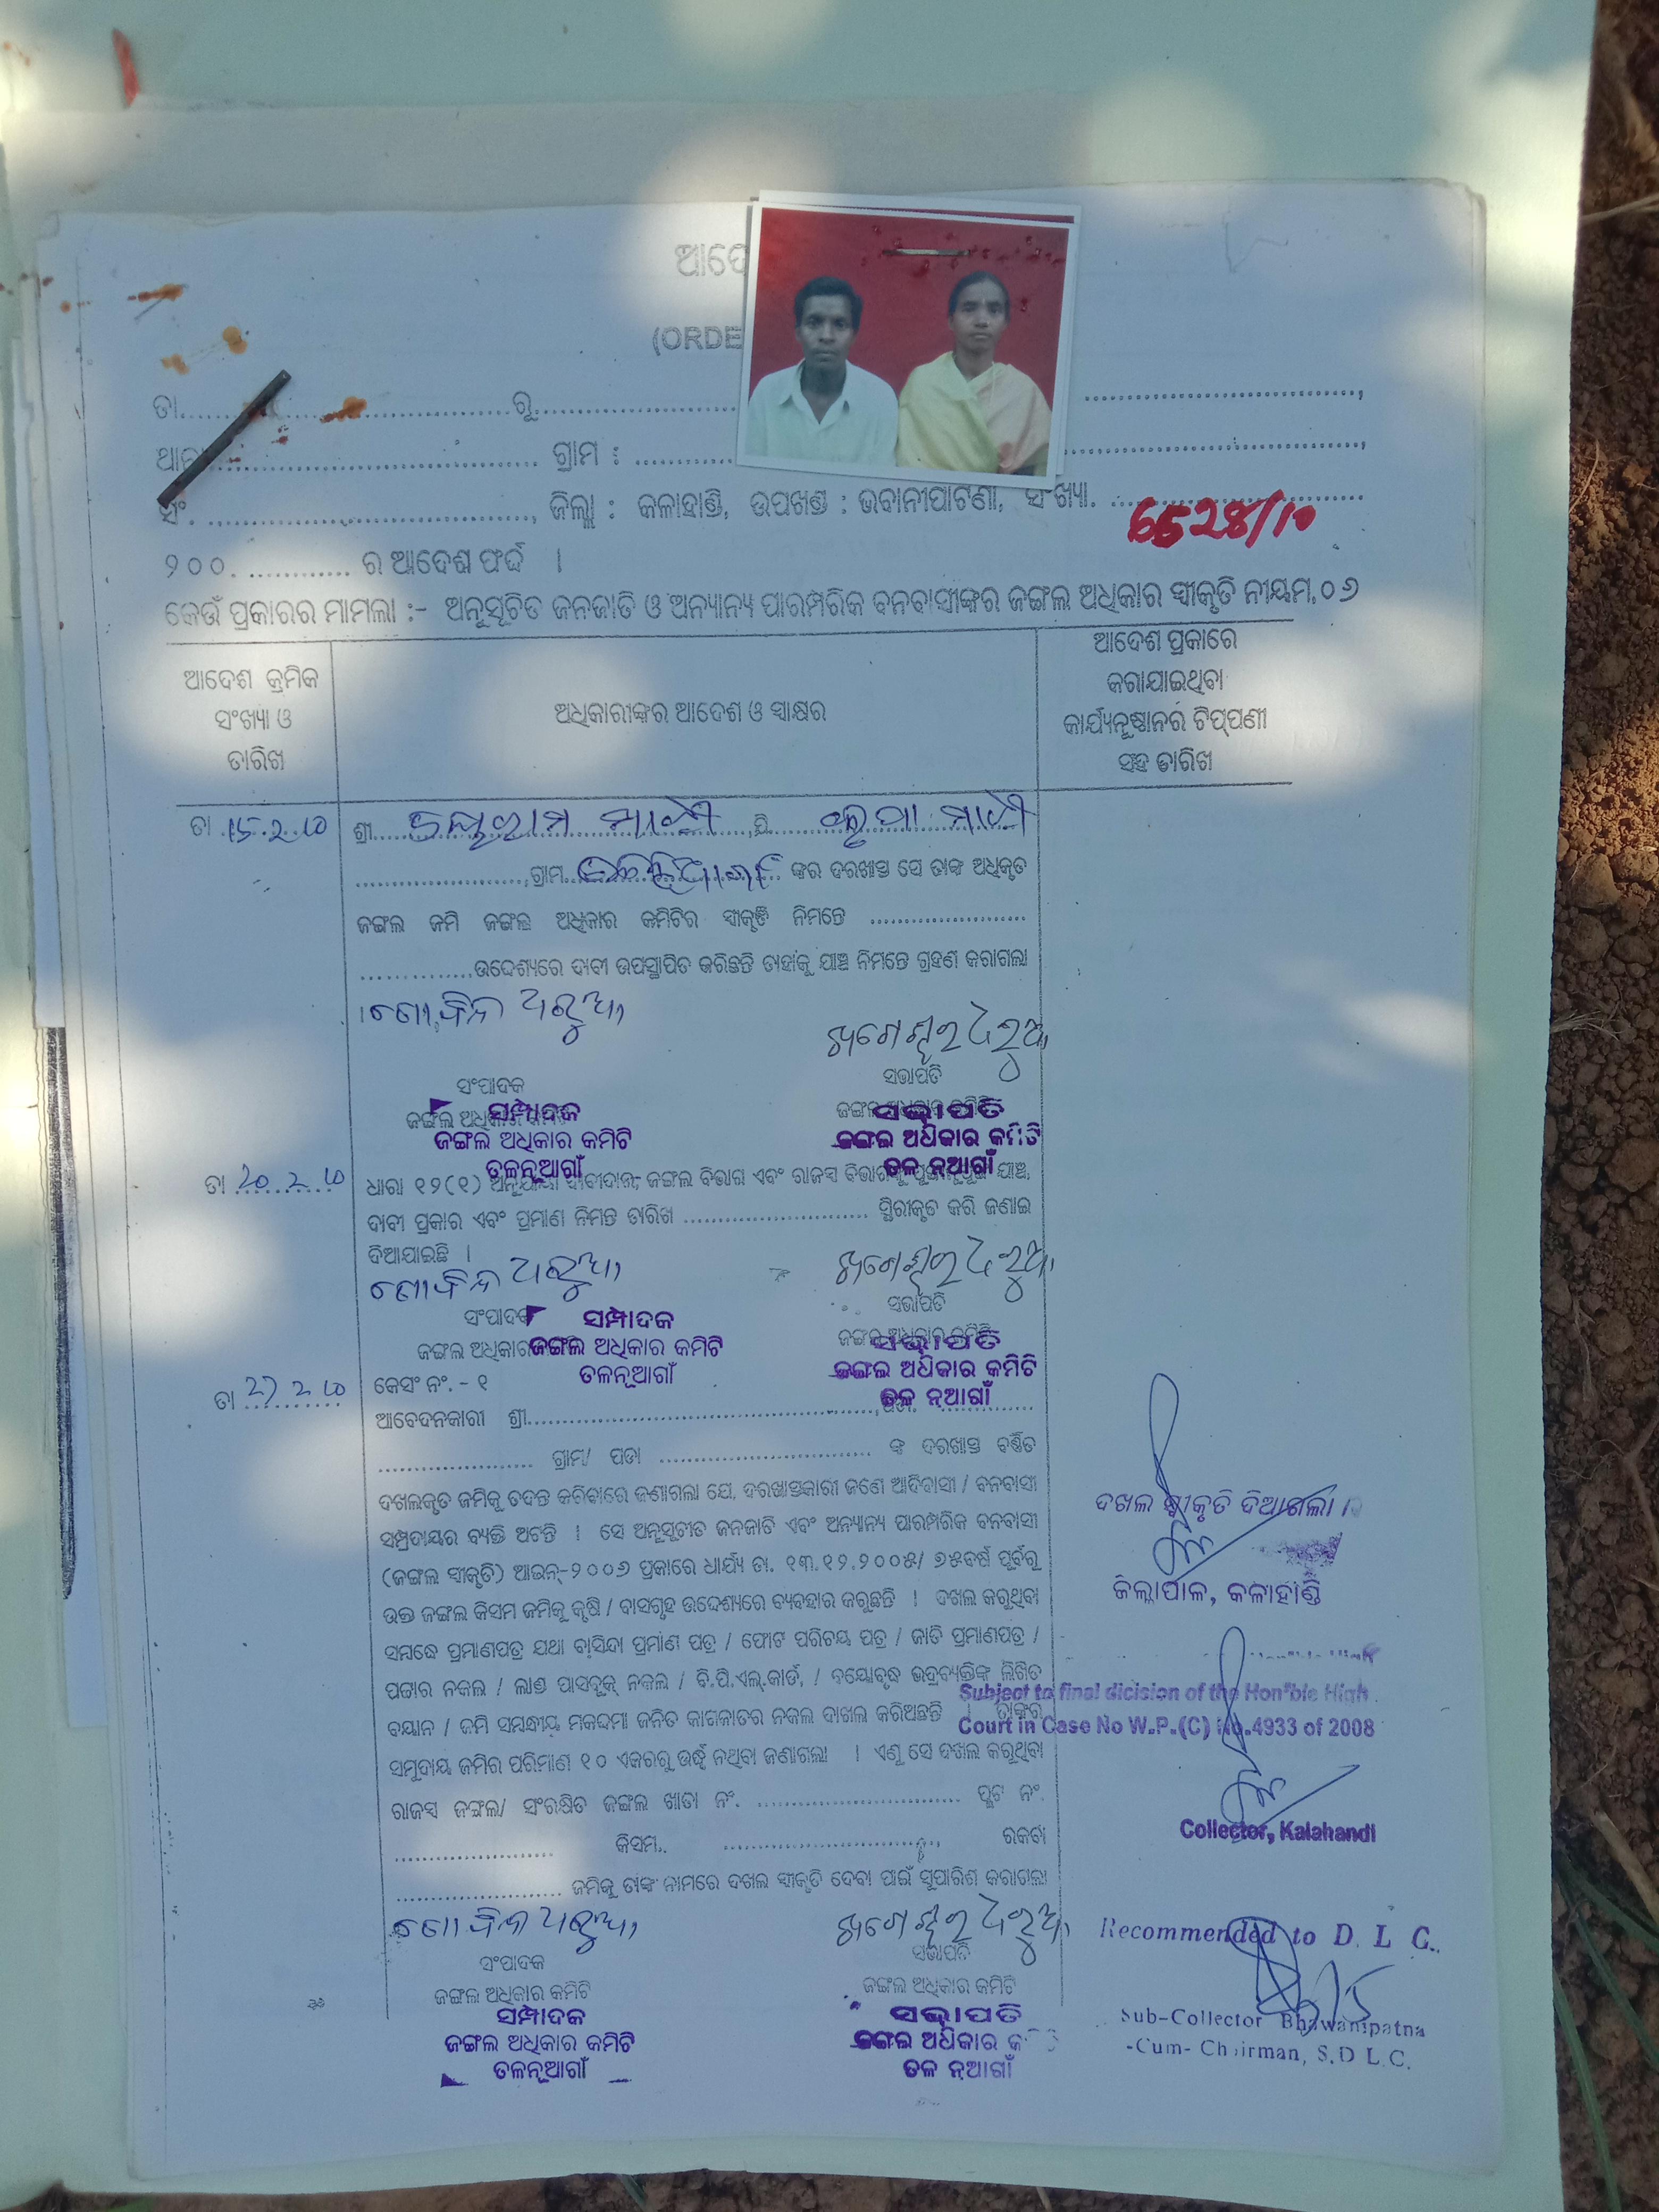 ଆଦେ
(ORDE
ତା.......................................ରୁ..............................
ଥାନା.................................... ଗ୍ରାମ : ..............................
ସଂ. ....................................., ଜିଲ୍ଲା : କଳାହାଣ୍ଡି, ଉପଖଣ୍ଡ : ଭବାନୀପାଟଣା, ସଂଖ୍ୟା. ..............................
୨୦୦. ............ ର ଆଦେଶ ଫର୍ଦ୍ଦ ।
କେଉଁ ପ୍ରକାରର ମାମଲା :- ଅନୁସୂଚିତ ଜନଜାତି ଓ ଅନ୍ୟାନ୍ୟ ପାରମ୍ପରିକ ବନବାସୀଙ୍କର ଜଙ୍ଗଲ ଅଧିକାର ସ୍ୱୀକୃତି ନୀୟମ,୦୬
ଆଦେଶ କ୍ରମିକ
ସଂଖ୍ୟା ଓ
ତାରିଖ
ଅଧିକାରୀଙ୍କର ଆଦେଶ ଓ ସ୍ୱାକ୍ଷର
ଆଦେଶ ପ୍ରକାରେ
କରାଯାଇଥିବା
କାର୍ଯ୍ୟାନୁଷ୍ଠାନର ଟିପ୍ପଣୀ
ସହ ତାରିଖ
ତା 15.2.10 ଶ୍ରୀ ମାଝୀ ,ପି ମାଝୀ
.......................,ଗ୍ରାମ ଙ୍କର ଦରଖାସ୍ତ ସେ ତାଙ୍କ ଅଧିକୃତ
ଜଙ୍ଗଲ ଜମି ଜଙ୍ଗଲ ଅଧିକାର କମିଟିର ସ୍ୱୀକୃତି ନିମନ୍ତେ .......................
...............ଉଦ୍ଦେଶ୍ୟରେ ଦାବୀ ଉପସ୍ଥାପିତ କରିଛନ୍ତି ତାହାକୁ ଯାଞ୍ଚ ନିମନ୍ତେ ଗ୍ରହଣ କରାଗଲା
ସଂପାଦକ
ସଭାପତି
ସମ୍ପାଦକ
ଜଙ୍ଗଲ ଅଧିକାର କମିଟି
ତଳନୂଆଗାଁ
ସଭାପତି
ଜଙ୍ଗଲ ଅଧିକାର କମିଟି
ତଳ ନୂଆଗାଁ
ତା 20.2.10 ଧାରା ୧୨(୧) ଅନୁଯାୟୀ ଦାବୀଦାର, ଜଙ୍ଗଲ ବିଭାଗ ଏବଂ ରାଜସ୍ୱ ଯାଞ୍ଚ,
ଦାବୀ ପ୍ରକାର ଏବଂ ପ୍ରମାଣ ନିମନ୍ତ ତାରିଖ ........................... ସ୍ଥିରୀକୃତ କରି ଜଣାଇ
ଦିଆଯାଇଛି ।
ସଂପାଦକ
ସଭାପତି
ସମ୍ପାଦକ
ଜଙ୍ଗଲ ଅଧିକାର କମିଟି
ତଳନୂଆଗାଁ
ସଭାପତି
ଜଙ୍ଗଲ ଅଧିକାର କମିଟି
ତଳ ନୂଆଗାଁ
ତା 27.2.10 କେସଂ ନଂ. - ୧
ଆବେଦନକାରୀ ଶ୍ରୀ..................................................
....................... ଗ୍ରାମ/ ପଡା ............................... ଙ୍କ ଦରଖାସ୍ତ ବର୍ଣ୍ଣିତ
ଦଖଲକୃତ ଜମିକୁ ତଦନ୍ତ କରିବାରେ ଜଣାଗଲା ଯେ, ଦରଖାସ୍ତକାରୀ ଜଣେ ଆଦିବାସୀ / ବନବାସୀ
ସମ୍ପ୍ରଦାୟର ବ୍ୟକ୍ତି ଅଟନ୍ତି । ସେ ଅନୁସୂଚୀତ ଜନଜାତି ଏବଂ ଅନ୍ୟାନ୍ୟ ପାରମ୍ପରିକ ବନବାସୀ
(ଜଙ୍ଗଲ ସ୍ୱୀକୃତି) ଆଇନ୍-୨୦୦୬ ପ୍ରକାରେ ଧାର୍ଯ୍ୟ ତା. ୧୩.୧୨.୨୦୦୫/ ୭୫ବର୍ଷ ପୂର୍ବରୁ
ଉକ୍ତ ଜଙ୍ଗଲ କିସମ ଜମିକୁ କୃଷି / ବାସଗୃହ ଉଦ୍ଦେଶ୍ୟରେ ବ୍ୟବହାର କରୁଛନ୍ତି । ଦଖଲ କରୁଥିବା
ସମ୍ବନ୍ଧେ ପ୍ରମାଣପତ୍ର ଯଥା ବାସିନ୍ଦା ପ୍ରମାଣ ପତ୍ର / ଫୋଟ ପରିଚୟ ପତ୍ର / ଜାତି ପ୍ରମାଣପତ୍ର /
ପଟ୍ଟାର ନକଲ / ଲାଣ୍ଡ ପାସବୁକ୍ ନକଲ / ବି.ପି.ଏଲ୍.କାର୍ଡ, / ବୟୋବୃଦ୍ଧ ଭଦ୍ରବ୍ୟକ୍ତିଙ୍କ ଲିଖିତ
ବୟାନ / ଜମି ସମ୍ବନ୍ଧୀୟ ମକଦ୍ଦମା ଜନିତ କାଗଜାତର ନକଲ ଦାଖଲ କରିଅଛନ୍ତି । ତାଙ୍କର
ସମୁଦାୟ ଜମିର ପରିମାଣ ୧୦ ଏକରରୁ ଉର୍ଦ୍ଧ୍ୱ ନଥିବା ଜଣାଗଲା । ଏଣୁ ସେ ଦଖଲ କରୁଥିବା
ରାଜସ୍ୱ ଜଙ୍ଗଲ/ ସଂରକ୍ଷିତ ଜଙ୍ଗଲ ଖାତା ନଂ. ............................... ପ୍ଲଟ ନଂ.
........................ କିସମ.. ................................, ରକବା
......................... ଜମିକୁ ତାଙ୍କ ନାମରେ ଦଖଲ ସ୍ୱୀକୃତି ଦେବା ପାଇଁ ସୁପାରିଶ କରାଗଲା
ସଂପାଦକ
ଜଙ୍ଗଲ ଅଧିକାର କମିଟି
ସଭାପତି
ଜଙ୍ଗଲ ଅଧିକାର କମିଟି
ସମ୍ପାଦକ
ଜଙ୍ଗଲ ଅଧିକାର କମିଟି
ତଳନୂଆଗାଁ
ସଭାପତି
ଜଙ୍ଗଲ ଅଧିକାର
ତଳ ନୂଆଗାଁ
ଦଖଲ ସ୍ୱୀକୃତି ଦିଆଗଲା ।
ଜିଲ୍ଲାପାଳ, କଳାହାଣ୍ଡି
Subject to final dicision of the Hon'ble High
Court in Case No W.P.(C) No.4933 of 2008
Collector, Kalahandi
Recommended to D. L. C.
Sub-Collector Bhawanipatna
-Cum- Chairman, S.D.L.C.